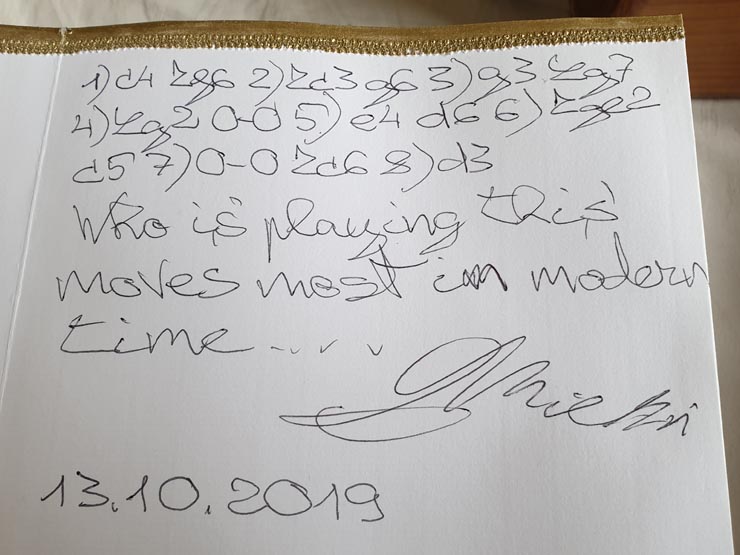 1) c4 Zg6 2) Zc3 g6 3) g3 Lg7
4) Lg2 0-0 5) e4 d6 6) Zge2
c5 7) 0-0 Zc6 8) d3
Who is playing this
moves most im modern
time....
13.10.2019